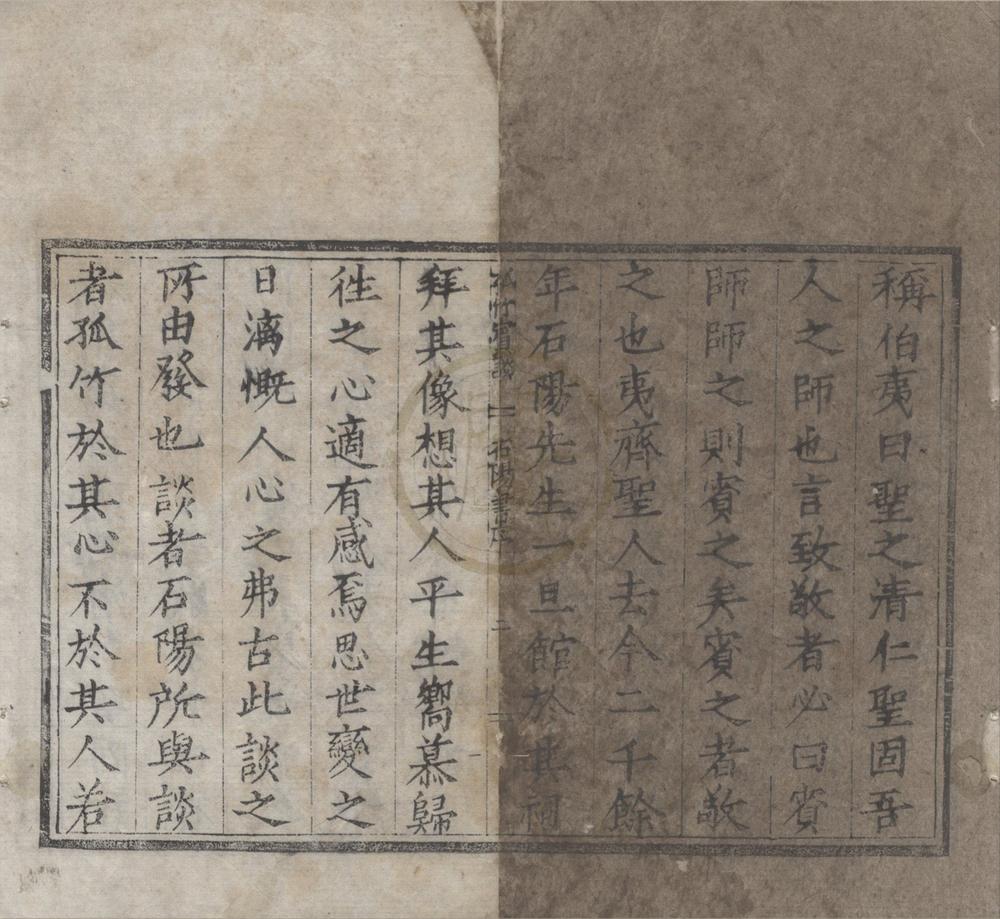 稱伯夷曰聖之淸仁聖固吾
人之師也言致敬者必曰賓
師師之則賓之矣賓之者敬
之也夷齊聖人去今二千餘
年石陽先生一旦館於其祠
孤竹賓談 石陽書院 二
拜其像想其人平生嚮慕歸
徃之心適有感焉思世變之
日漓慨人心之弗古此談之
所由發也談者石陽所與談
者孤竹於其心不於其人若